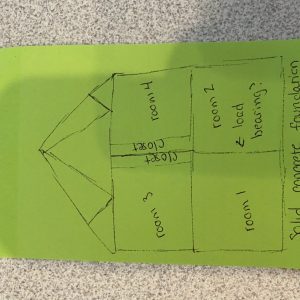 room 3
closet
closet
room 4
room 1
room 2
← load
bearing?
Solid concrete foundation